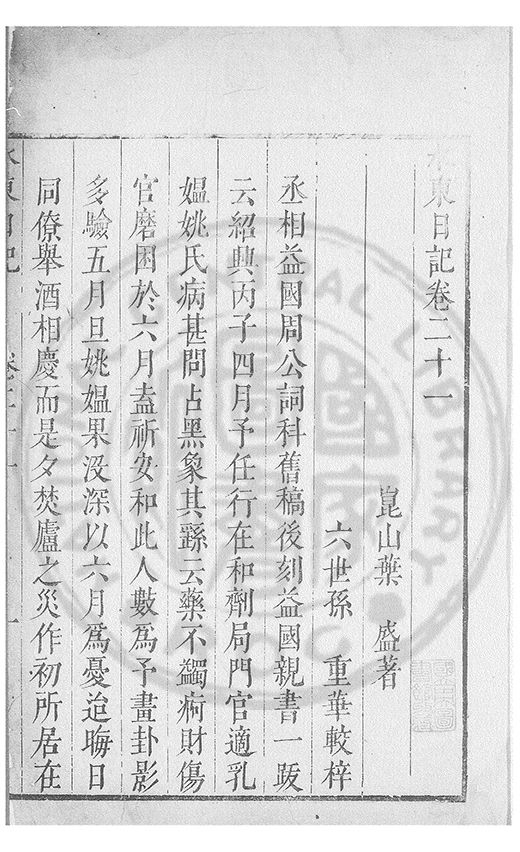 水東日記卷二十一
崑山葉　盛著
六世孫　重華較梓
丞相益國周公詞科舊稿後刻益國親書一跋
云紹興丙子四月予任行在和劑局門官適乳
媼姚氏病甚問占黑象其繇云藥不蠲痾財傷
官磨困於六月盍祈安和此人數爲予畫卦影
多驗五月旦姚媼果没深以六月爲憂迨晦日
同僚舉酒相慶而是夕焚廬之災作初所居在
水東日記　卷二十一　一